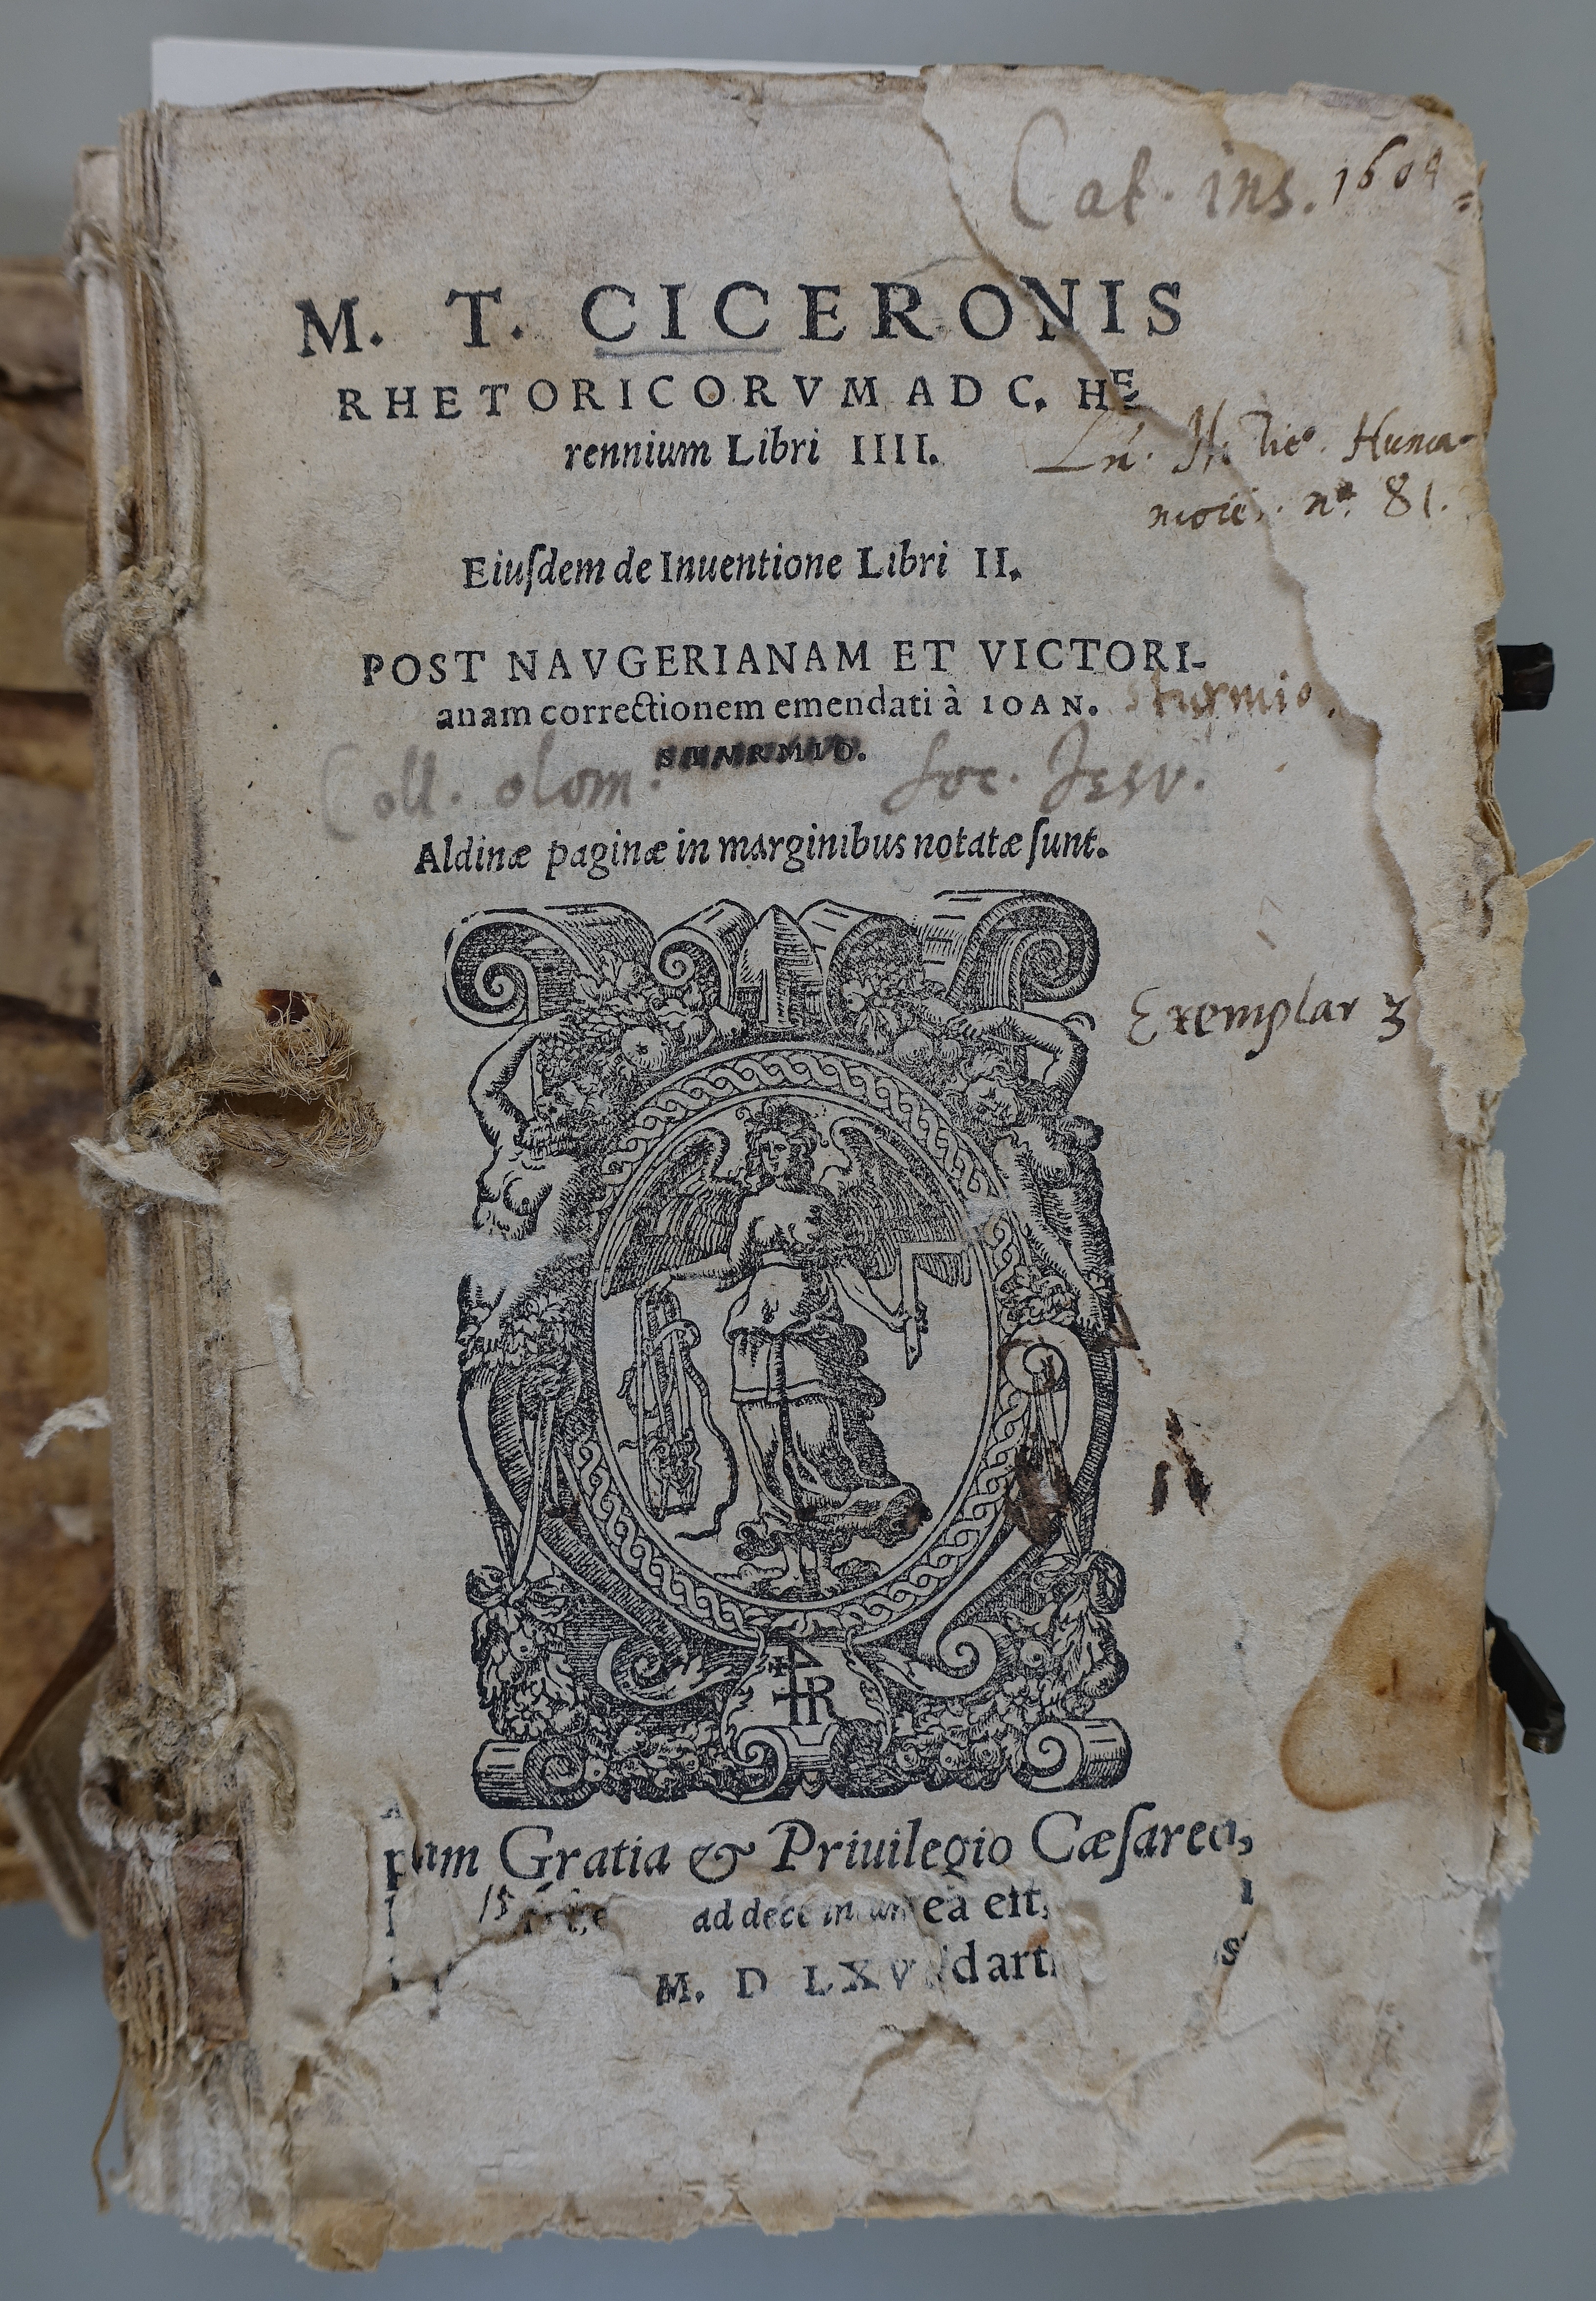 Cat. ins. 1604
M. T. CICERONIS
RHETORICORVM AD C. HE
rennium Libri IIII.
n° 81.
Eiuſdem de Inuentione Libri II.
POST NAVGERIANAM ET VICTORI-
anam correctionem emendati à IOAN. Sturmio.
STVRMIO.
Coll. olom. Soc. Jesv.
Aldinæ paginæ in marginibus notatæ ſunt.
Exemplar 3
TR
Gratia & Priuilegio Cæſareo,
ad decē
M. D LXV